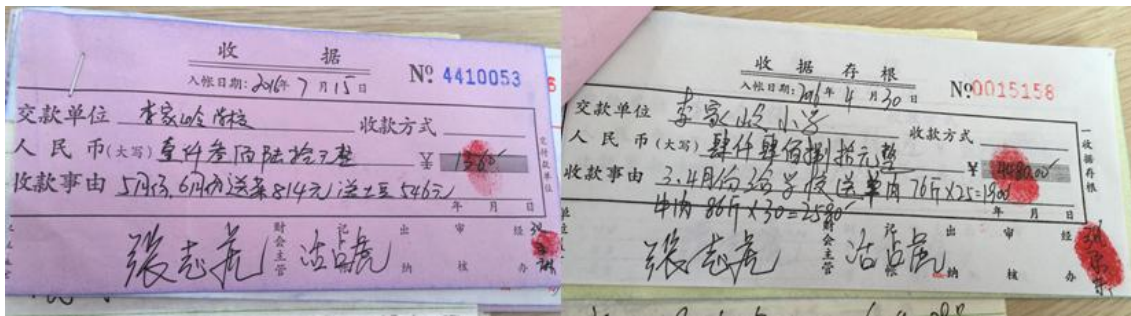 收 据
入帐日期:2016年 7 月 15 日
№ 4410053
交款单位 李家岭学校 收款方式
人 民 币(大写) 壹仟叁佰陆拾元整 ¥ 1360
收款事由 5月份,6月份送菜814元,送土豆546元
年 月 日
财会主管 记帐 出纳 审核 经办
张志虎
收 据 存 根
入帐日期:2016年 4 月 30 日
№0015158
交款单位 李家岭小学 收款方式
人 民 币(大写) 肆仟肆佰捌拾元整 ¥ 4480.00
收款事由 3.4月份给学校送羊肉 76斤×25=1900
牛肉 86斤×30=2580
年 月 日
一收据存根
财会主管 记帐 出纳 审核 经办
张志虎